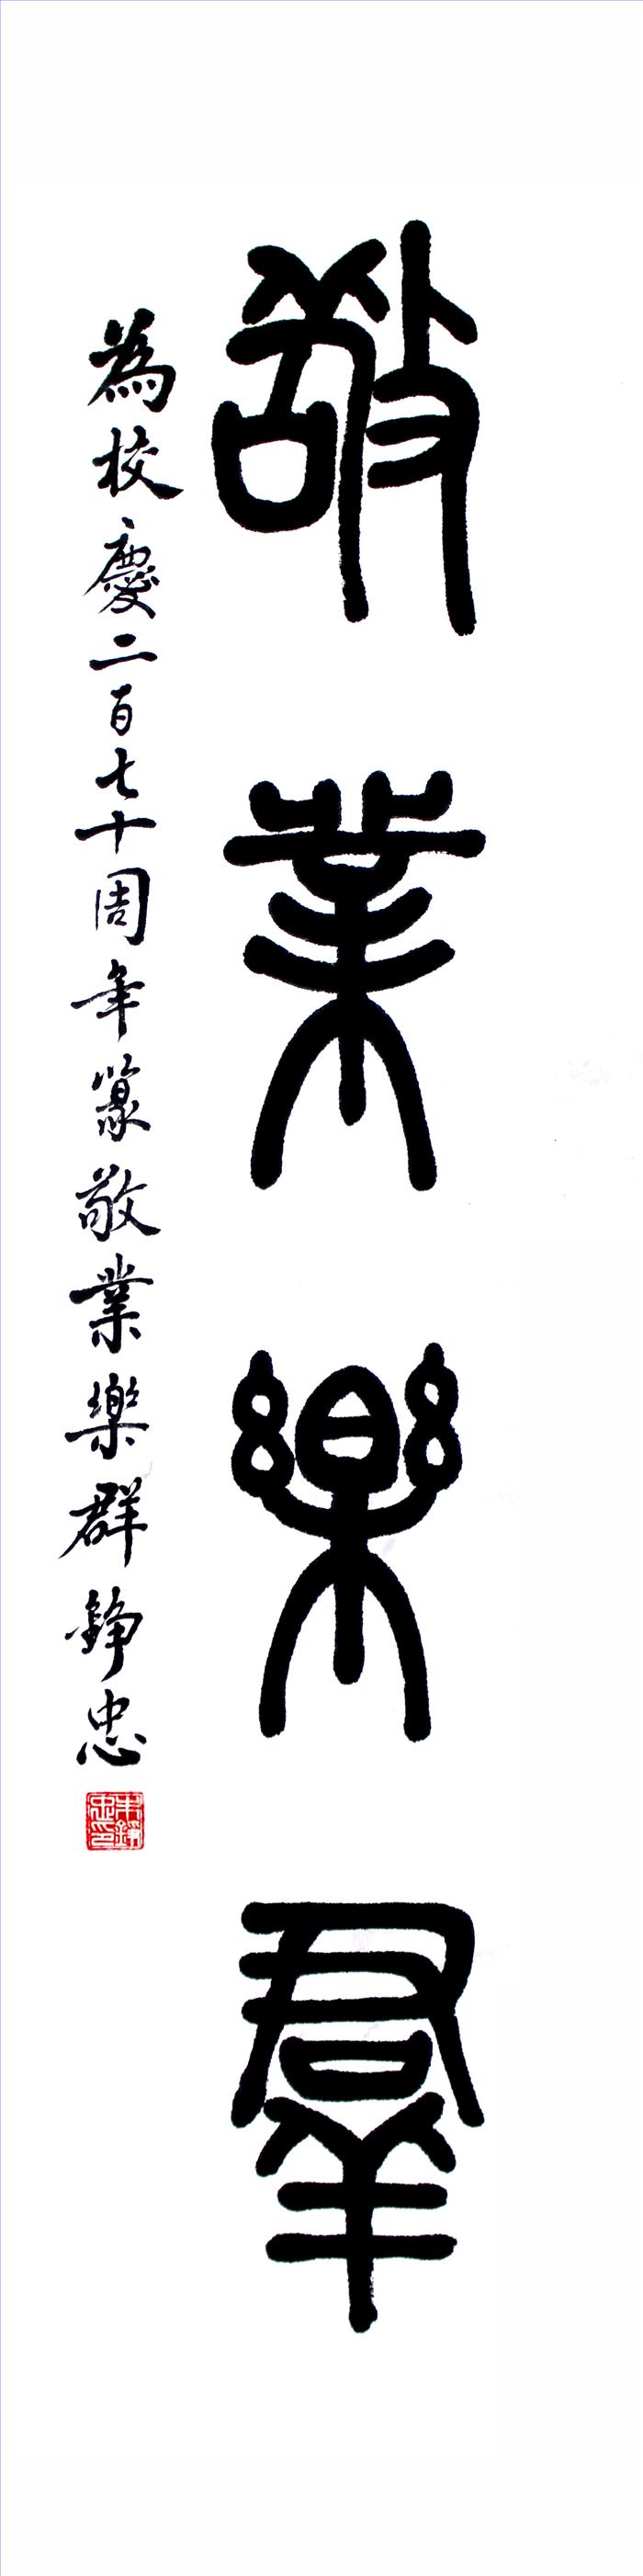 敬業樂羣
為校慶二百七十周年篆敬業樂群錚忠